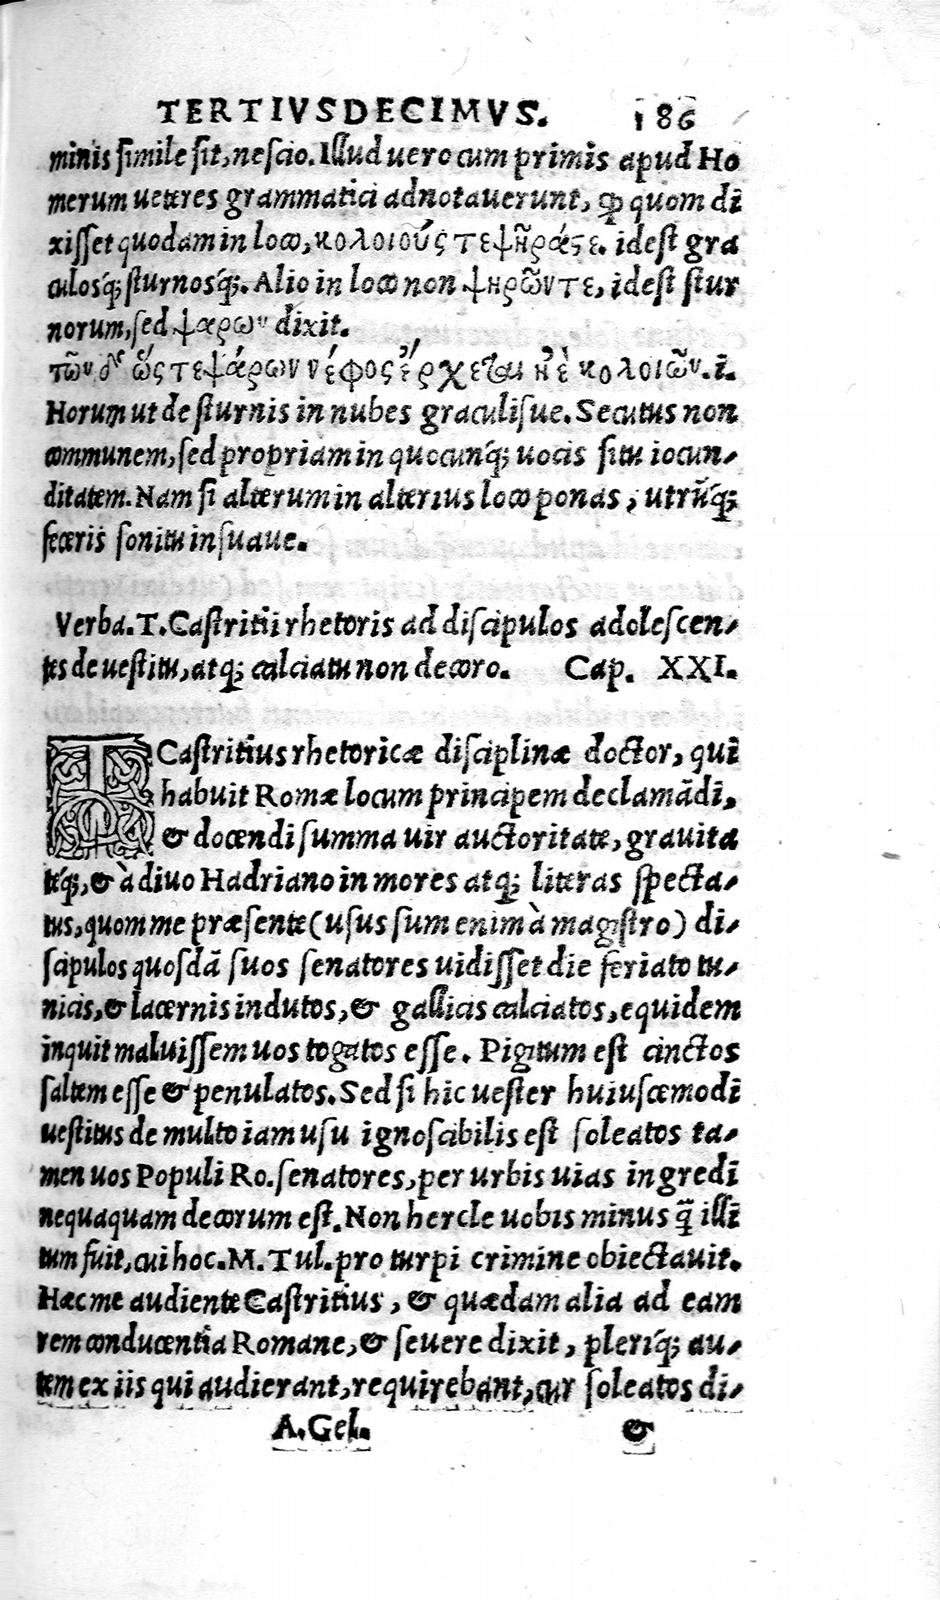 TERTIVSDECIMVS. 186
minis ſimile ſit, neſcio. Illud uero cum primis apud Ho
merum ueteres grammatici adnotauerunt, ꝙ quom di
xiſſet quodam in loco, κολοιούς τε ψῆράς τε. ideſt gra
culosq́; ſturnosq́;. Alio in loco non ψηρῶν τε, ideſt ſtur
norum, ſed ψαρων dixit.
τῶν δ' ὥς τε ψάρων νέφος ἔρχεται ἠὲ κολοιῶν. i.
Horum ut de ſturnis in nubes graculiſue. Secutus non
communem, ſed propriam in quocunq́; uocis ſitu iocun-
ditatem. Nam ſi alterum in alterius loco ponas, utrūq́;
feceris ſonitu inſuaue.
Verba. T. Caſtritii rhetoris ad diſcipulos adoleſcen-
tes de ueſtitu, atq; calciatu non decoro. Cap. XXI.
T Caſtritius rhetoricæ diſciplinæ doctor, qui
habuit Romæ locum principem declamādi,
& docendi ſumma uir auctoritate, grauita
teq́;, & à diuo Hadriano in mores atq; literas ſpecta-
tus, quom me præſente (uſus ſum enim à magiſtro) di-
ſcipulos quoſdā ſuos ſenatores uidiſſet die feriato tu-
nicis, & lacernis indutos, & gallicis calciatos, equidem
inquit maluiſſem uos togatos eſſe. Pigitum eſt cinctos
ſaltem eſſe & penulatos. Sed ſi hic ueſter huiuſcemodi
ueſtitus de multo iam uſu ignoſcibilis eſt ſoleatos ta-
men uos Populi Ro. ſenatores, per urbis uias ingredi
nequaquam decorum eſt. Non hercle uobis minus q̃ illi
tum fuit, cui hoc. M. Tul. pro turpi crimine obiectauit.
Hæc me audiente Caſtritius, & quædam alia ad eam
rem conducentia Romane, & ſeuere dixit, pleriq́; au-
tem ex iis qui audierant, requirebant, cur ſoleatos di-
A. Gel. &